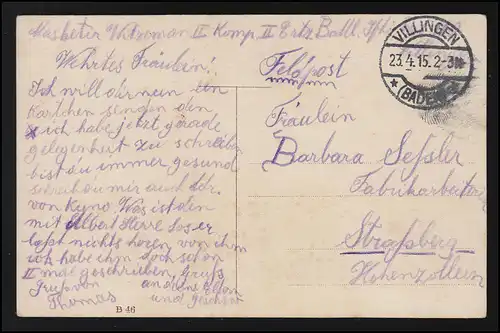 Musketier II Komp. II Ersz. Batl.
Wehrtes Fräulein!
Ich will dir nun ein
Kärtchen senden den
ich habe jetzt gerade
gelegenheit zu schreiben
bist du immer gesund
mir auch
von Kyno. Was ist den
mit Albert Herre los er
laßt nichts hören von ihm
ich habe ihm doch schon
II mal geschrieben, Gruß
Gruß von an deine Eltern
Thomas und Geschwist
Feldpost
VILLINGEN
23.4.15. 2-3N
(BADEN)
Fräulein
Barbara Seßler
Fabrikarbeiterin
Straßberg
Hohenzollern
B 46